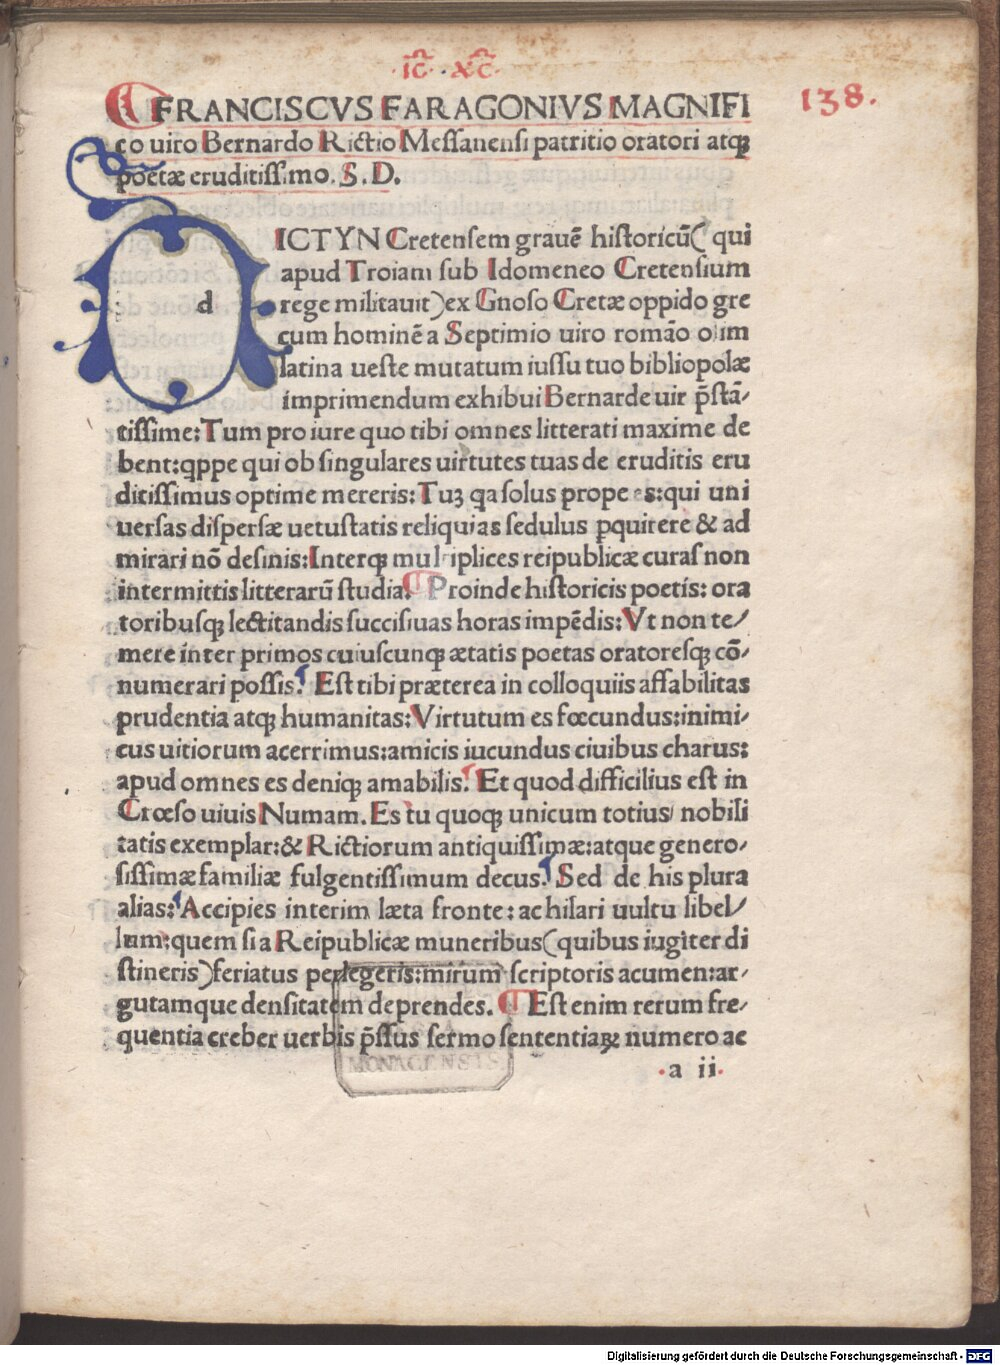 ·ic̄· ·xc̄·
138.
FRANCISCVS FARAGONIVS MAGNIFI
co uiro Bernardo Rictio Messanensi patritio oratori atqꝫ
poetæ eruditissimo. S. D.
d
ICTYN Cretensem grauē historicū( qui
apud Troiam sub Idomeneo Cretensium
rege militauit)ex Gnoso Cretæ oppido gre
cum hominē a Septimio uiro romāo olim
latina ueste mutatum iussu tuo bibliopolæ
imprimendum exhibui Bernarde uir p̄stā/
tissime: Tum pro iure quo tibi omnes litterati maxime de
bent:qppe qui ob singulares uirtutes tuas de eruditis eru
ditissimus optime mereris: Tuꝫ qa solus prope es:qui uni
uersas dispersæ uetustatis reliquias sedulus ꝑquirere & ad
mirari nō desinis: Interqꝫ multiplices reipublicæ curas non
intermittis litterarū studia. Proinde historicis poetis: ora
toribusqꝫ lectitandis succisiuas horas impēdis: Vt non te/
mere inter primos cuiuscunqꝫ ætatis poetas oratoresqꝫ cō/
numerari possis. Est tibi præterea in colloquiis affabilitas
prudentia atqꝫ humanitas: Virtutum es fœcundus:inimi/
cus uitiorum acerrimus:amicis iucundus ciuibus charus:
apud omnes es deniqꝫ amabilis. Et quod difficilius est in
Crœso uiuis Numam. Es tu quoqꝫ unicum totius nobili
tatis exemplar:& Rictiorum antiquissimæ:atque genero/
sissimæ familiæ fulgentissimum decus. Sed de his plura
alias: Accipies interim læta fronte: ac hilari uultu libel/
lum:quem si a Reipublicæ muneribus( quibus iugiter di
stineris)feriatus perlegeris:mirum scriptoris acumen:ar/
gutamque densitatem deprendes. Est enim rerum fre/
quentia creber uerbis p̄ssus sermo sententiaꝝ numero ac
·a ii·
MONACENSIS
Digitalisierung gefördert durch die Deutsche Forschungsgemeinschaft - DFG